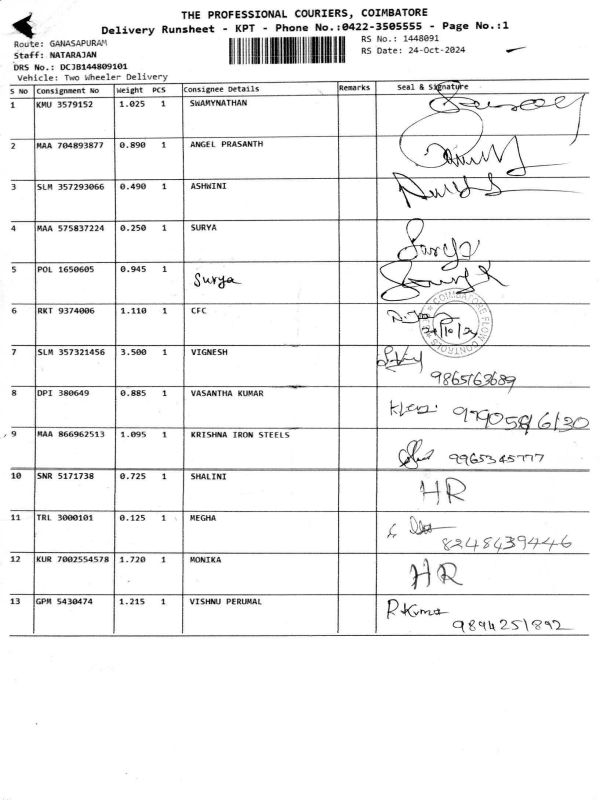 THE PROFESSIONAL COURIERS, COIMBATORE
Delivery Runsheet - KPT - Phone No.:0422-3505555 - Page No.:1
Route: GANASAPURAM
RS No.: 1448091
Staff: NATARAJAN
RS Date: 24-Oct-2024
DRS No.: DCJB144809101
Vehicle: Two Wheeler Delivery
S No Consignment No Weight PCS Consignee Details Remarks Seal & Signature
1 KMU 3579152 1.025 1 SWAMYNATHAN
2 MAA 704893877 0.890 1 ANGEL PRASANTH
3 SLM 357293066 0.490 1 ASHWINI
4 MAA 575837224 0.250 1 SURYA Surya
5 POL 1650605 0.945 1 Surya
6 RKT 9374006 1.110 1 CFC
COIMBATORE FLOW CONTROLS
7 SLM 357321456 3.500 1 VIGNESH
9865163689
8 DPI 380649 0.885 1 VASANTHA KUMAR
9 MAA 866962513 1.095 1 KRISHNA IRON STEELS
9965345777
10 SNR 5171738 0.725 1 SHALINI HR
11 TRL 3000101 0.125 1 MEGHA
8248439446
12 KUR 7002554578 1.720 1 MONIKA HR
13 GPM 5430474 1.215 1 VISHNU PERUMAL R.Kumar
9894251892